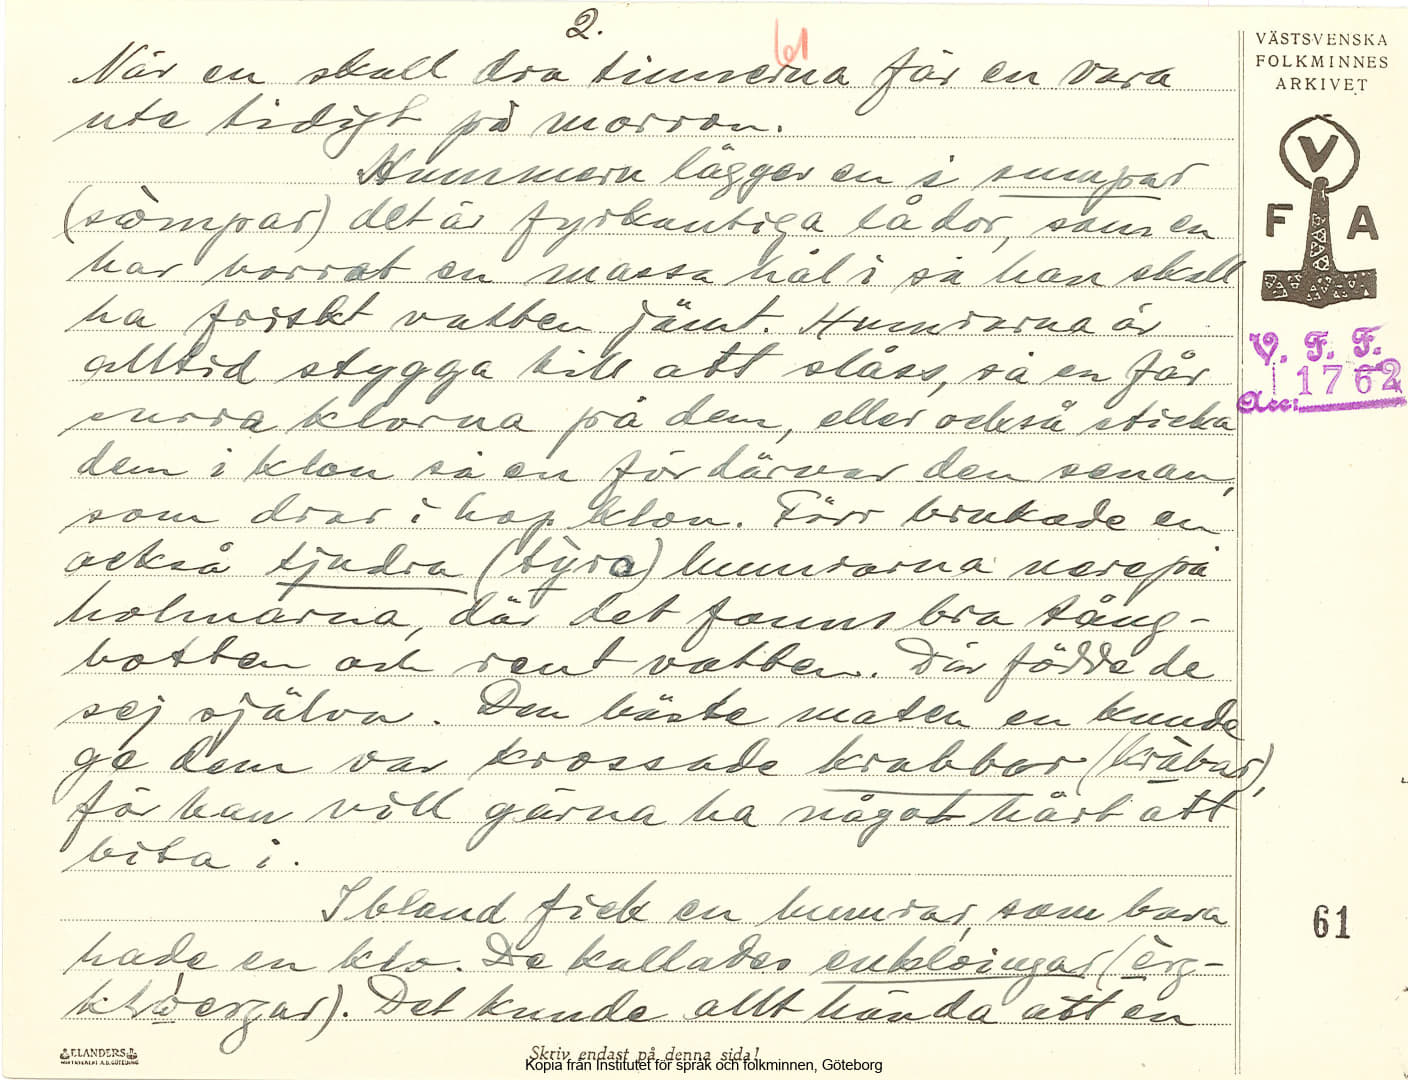 2.
61
När en skall dra tinnerna får en vara
ute tidigt på morron.
Hummern lägger en i sumpar
(sòmpar) det är fyrkantiga lådor, som en
har borrat en massa hål i så han skall
ha friskt vatten jämt. Humrarna är
alltid stygga till att slåss, så en får
surra klorna på dem, eller också sticka
dem i klon så en fördärvar den senan,
som drar i hop klon. Förr brukade en
också tjudra (tỳra) humrarna nere på
holmarna, där det fanns bra tång-
botten och rent vatten. Där födde de
sej själva. Den bäste maten en kunde
ge dem var krossade krabbor (kràbar),
för han vill gärna ha något hårt att
bita i.
Ibland fick en humrar, som bara
hade en klo. De kallades enklöingar (èrg-
kløergar). Det kunde allt hända att en
VÄSTSVENSKA
FOLKMINNES
ARKIVET
V
F A
V. F. F.
Acc: 1762
61
ELANDERS
Skriv endast på denna sida!
Kopia från Institutet för språk och folkminnen, Göteborg